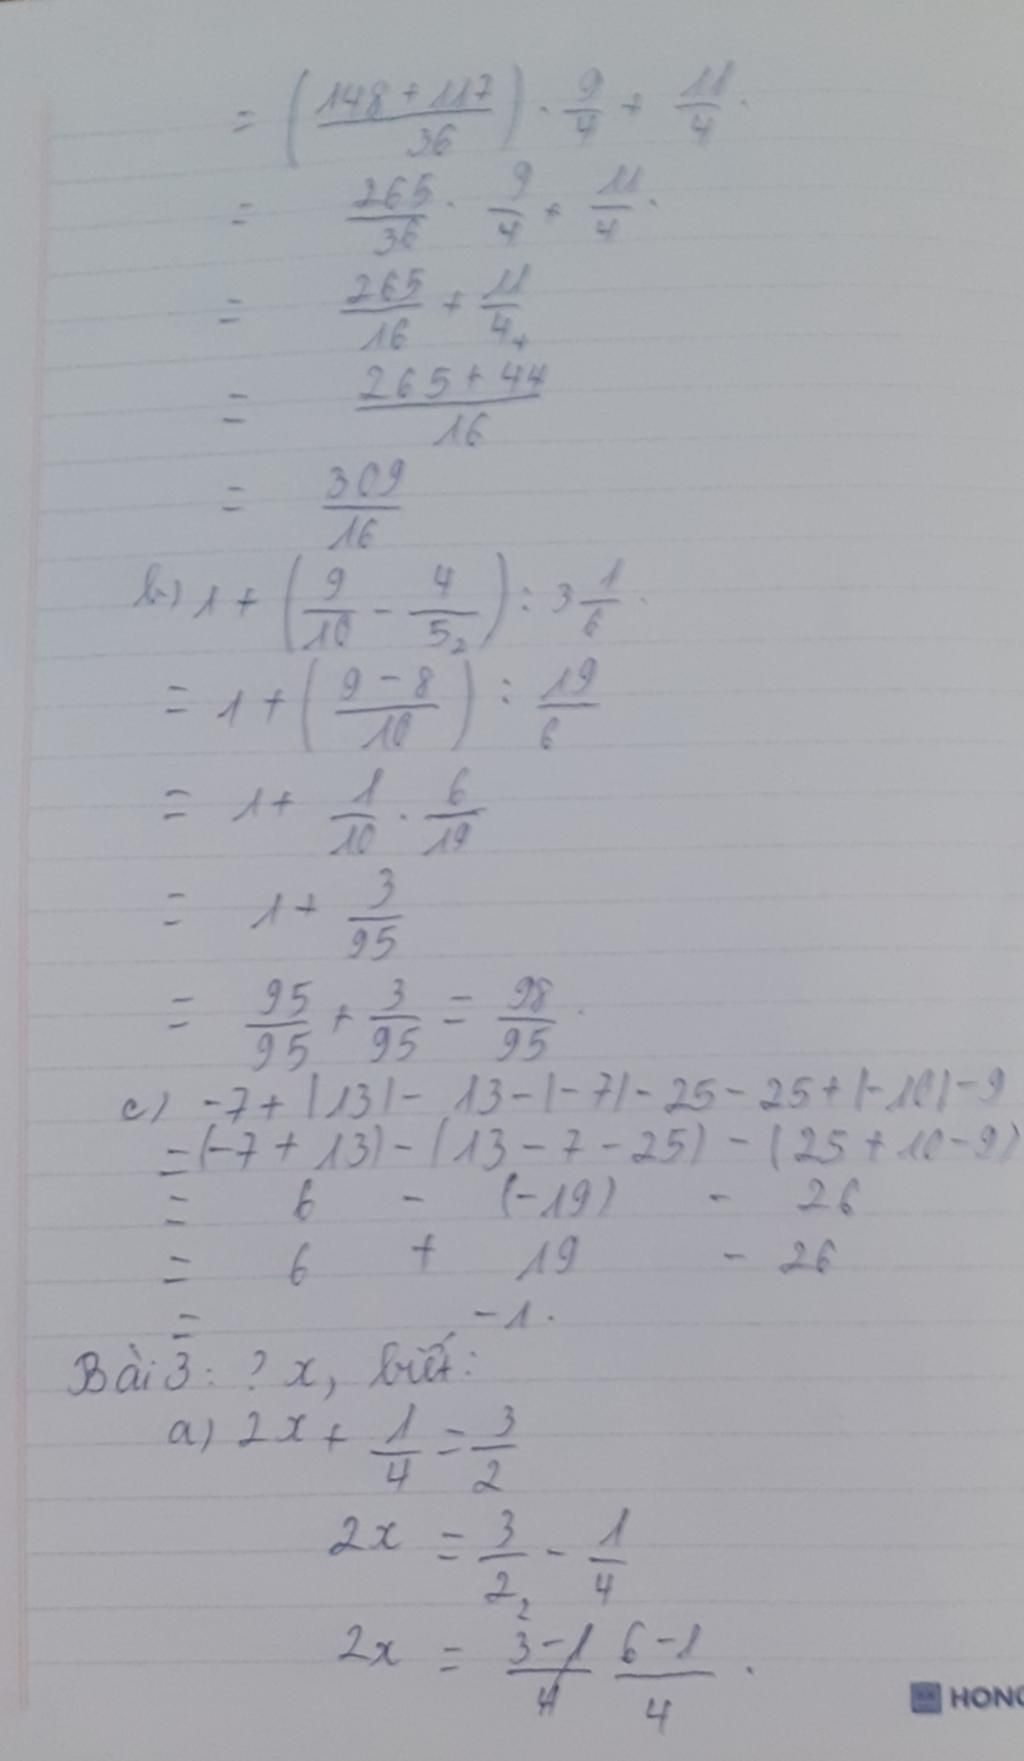 = (148 + 117 / 36) . 9/4 + 11/4 .
= 265/36 . 9/4 + 11/4 .
= 265/16 + 11/4 4
= 265 + 44 / 16
= 309/16
b) 1 + (9/10 - 4/5 2) : 3 1/6 .
= 1 + (9 - 8 / 10) : 19/6
= 1 + 1/10 . 6/19
= 1 + 3/95
= 95/95 + 3/95 = 98/95 .
c) -7 + |13| - 13 - |-7| - 25 - 25 + |-10| - 9
= (-7 + 13) - (13 - 7 - 25) - (25 + 10 - 9)
= 6 - (-19) - 26
= 6 + 19 - 26
= -1.
Bài 3: ? x, biết:
a) 2x + 1/4 = 3/2
2x = 3/2 2 - 1/4
2x = 3 - 1 / 4 6 - 1 / 4 .
HONG